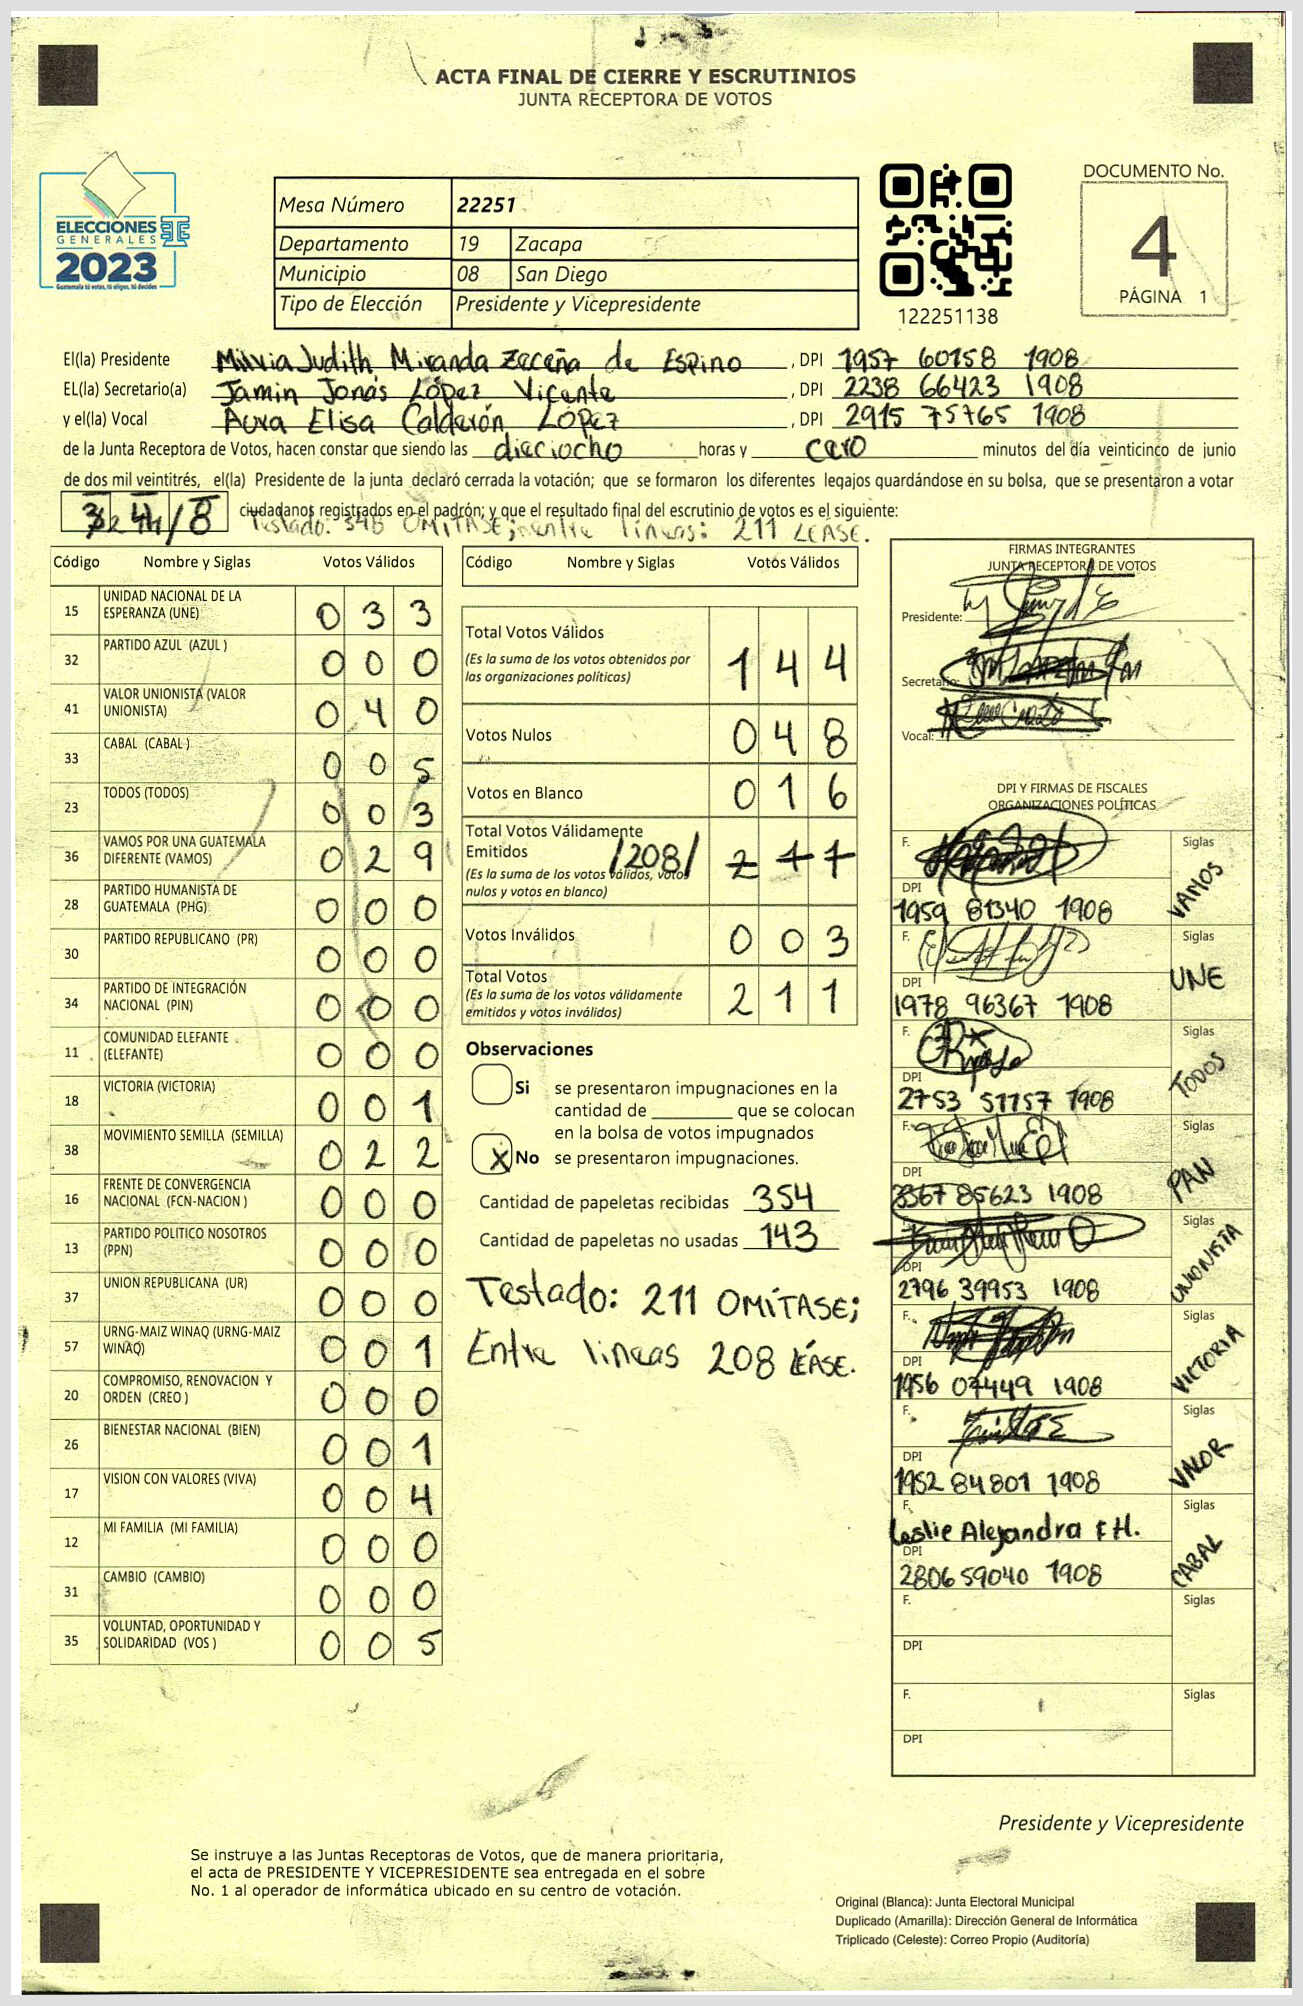 ACTA FINAL DE CIERRE Y ESCRUTINIOS
JUNTA RECEPTORA DE VOTOS
ELECCIONES
GENERALES
2023
Guatemala tú votas, tú eliges, tú decides
Mesa Número 22251
Departamento 19 Zacapa
Municipio 08 San Diego
Tipo de Elección Presidente y Vicepresidente
122251138
DOCUMENTO No.
4
PÁGINA 1
El(la) Presidente Milvia Judith Miranda Zeceña de Espino, DPI 1957 60158 1908
EL(la) Secretario(a) Jamin Jonás López Vicente, DPI 2238 66423 1908
y el(la) Vocal Aura Elisa Calderón López, DPI 2915 75765 1908
de la Junta Receptora de Votos, hacen constar que siendo las dieciocho horas y cero minutos del día veinticinco de junio
de dos mil veintitrés, el(la) Presidente de la junta declaró cerrada la votación; que se formaron los diferentes legajos quardándose en su bolsa, que se presentaron a votar
ciudadanos registrados en el padrón; y que el resultado final del escrutinio de votos es el siguiente:
Testado: 348 OMITASE; entre lineas: 211 LEASE.
Código Nombre y Siglas Votos Válidos
15 UNIDAD NACIONAL DE LA ESPERANZA (UNE) 0 3 3
32 PARTIDO AZUL (AZUL ) 0 0 0
41 VALOR UNIONISTA (VALOR UNIONISTA) 0 4 0
33 CABAL (CABAL ) 0 0 5
23 TODOS (TODOS) 0 0 3
36 VAMOS POR UNA GUATEMALA DIFERENTE (VAMOS) 0 2 9
28 PARTIDO HUMANISTA DE GUATEMALA (PHG) 0 0 0
30 PARTIDO REPUBLICANO (PR) 0 0 0
34 PARTIDO DE INTEGRACIÓN NACIONAL (PIN) 0 0 0
11 COMUNIDAD ELEFANTE (ELEFANTE) 0 0 0
18 VICTORIA (VICTORIA) 0 0 1
38 MOVIMIENTO SEMILLA (SEMILLA) 0 2 2
16 FRENTE DE CONVERGENCIA NACIONAL (FCN-NACION ) 0 0 0
13 PARTIDO POLITICO NOSOTROS (PPN) 0 0 0
37 UNION REPUBLICANA (UR) 0 0 0
57 URNG-MAIZ WINAQ (URNG-MAIZ WINAQ) 0 0 1
20 COMPROMISO, RENOVACION Y ORDEN (CREO ) 0 0 0
26 BIENESTAR NACIONAL (BIEN) 0 0 1
17 VISION CON VALORES (VIVA) 0 0 4
12 MI FAMILIA (MI FAMILIA) 0 0 0
31 CAMBIO (CAMBIO) 0 0 0
35 VOLUNTAD, OPORTUNIDAD Y SOLIDARIDAD (VOS ) 0 0 5
Código Nombre y Siglas Votos Válidos
Total Votos Válidos 1 4 4
(Es la suma de los votos obtenidos por
las organizaciones políticas)
Votos Nulos 0 4 8
Votos en Blanco 0 1 6
Total Votos Válidamente
Emitidos /208/ 2 1 1
(Es la suma de los votos válidos, votos
nulos y votos en blanco)
Votos Inválidos 0 0 3
Total Votos 2 1 1
(Es la suma de los votos válidamente
emitidos y votos inválidos)
Observaciones
Si se presentaron impugnaciones en la
cantidad de ________ que se colocan
en la bolsa de votos impugnados
X No se presentaron impugnaciones.
Cantidad de papeletas recibidas 354
Cantidad de papeletas no usadas 143
Testado: 211 OMÍTASE;
Entre lineas 208 LÉASE.
FIRMAS INTEGRANTES
JUNTA RECEPTORA DE VOTOS
Presidente:
Secretario:
Vocal:
DPI Y FIRMAS DE FISCALES
ORGANIZACIONES POLÍTICAS
F. Siglas
VAMOS
DPI
1959 81340 1908
F. Siglas
UNE
DPI
1978 96367 1908
F. Siglas
TODOS
DPI
2753 51757 1908
F. Siglas
PAN
DPI
3367 85623 1908
F. Siglas
UNIONISTA
DPI
2796 39953 1908
F. Siglas
VICTORIA
DPI
1956 07449 1908
F. Siglas
VALOR
DPI
1952 84801 1908
F. Siglas
Leslie Alejandra E H.
CABAL
DPI
2806 59040 1908
F. Siglas
DPI
F. Siglas
DPI
Presidente y Vicepresidente
Se instruye a las Juntas Receptoras de Votos, que de manera prioritaria,
el acta de PRESIDENTE Y VICEPRESIDENTE sea entregada en el sobre
No. 1 al operador de informática ubicado en su centro de votación.
Original (Blanca): Junta Electoral Municipal
Duplicado (Amarilla): Dirección General de Informática
Triplicado (Celeste): Correo Propio (Auditoría)